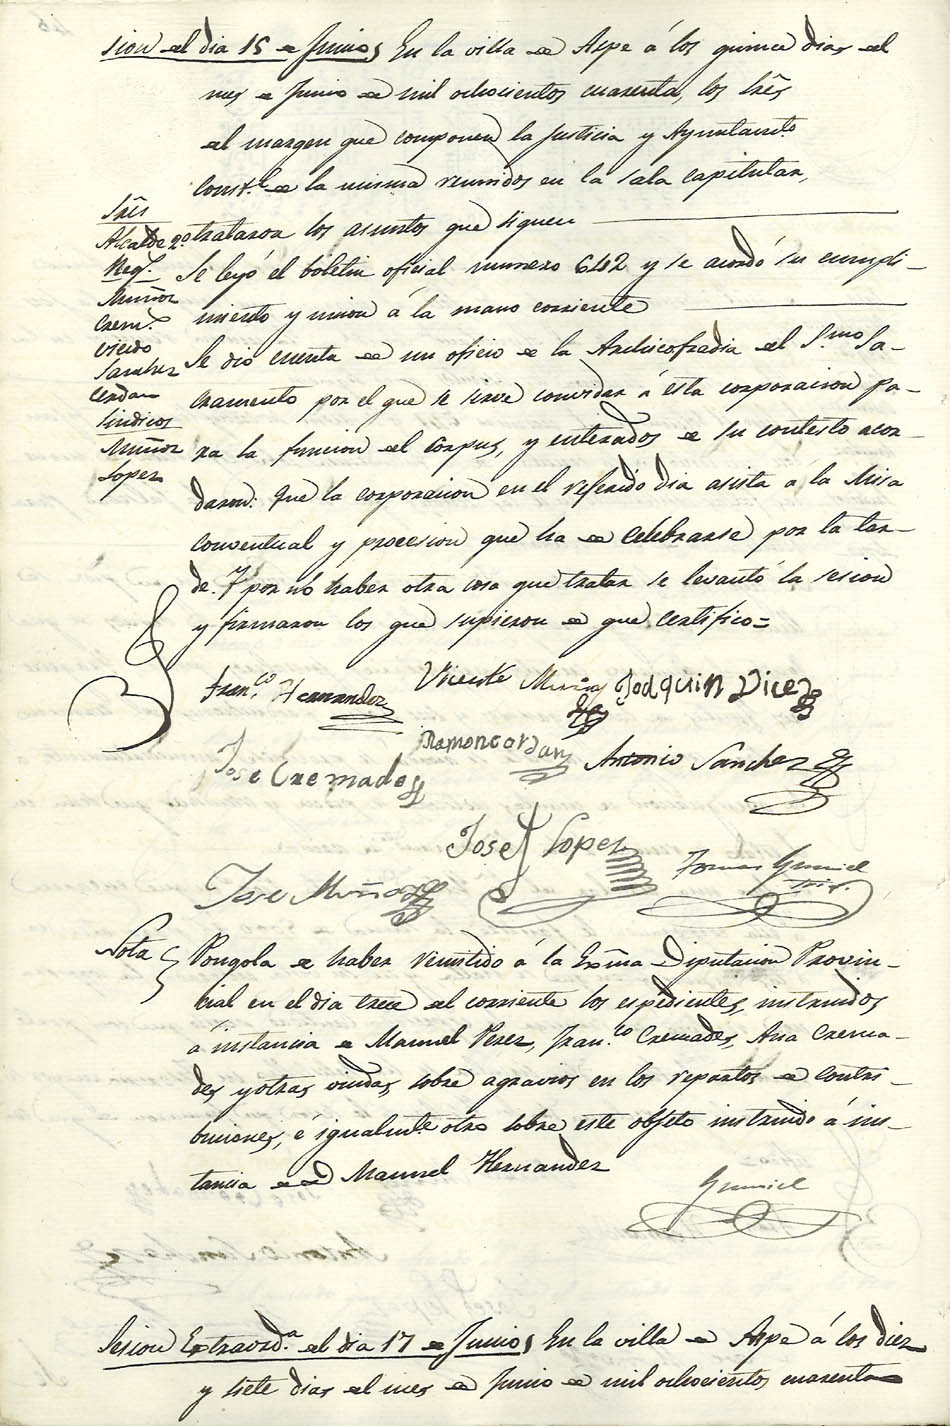 Sion del dia 15 de Junio, En la villa de Aspe á los quince dias del
mes de Junio de mil ochocientos cuarenta, los Sres
del margen que componen la Justicia y Ayuntamto.
Const.l de la misma reunidos en la sala capitular,
trataron los asuntos que siguen
Sres
Alcalde 2.o
Reg.s
Muñoz
Crem.s
Vicedo
Sanchez
Cerdan
Sindicos
Muñoz
Lopez
Se leyó el boletin oficial numero 642 y se acordó su cumpli-
miento y union á la mano corriente
Se dio cuenta de un oficio de la Archicofradia del Smo Sa-
cramento por el que se sirve convidar á esta corporacion pa-
ra la funcion del Corpus, y enterados de su contesto acor-
daron: Que la corporacion en el referido dia asista á la Misa
conventual y procesion que ha de celebrarse por la tar-
de. Y por nó haber otra cosa que tratar se levantó la sesion
y firmaron los que supieron de que certifico=
Fran.co Hernandez
Vicente Muñoz
Joaquin Vicedo
Jose Cremades
Ramon cerdan
Antonio Sanchez
Jose Lopez
Jose Muñoz
Tomas Gumiel
Srio.
Nota
Pongola de haber remitido á la Exma Diputacion Provin-
cial en el dia trece del corriente los espedientes, instruidos
á instancia de Manuel Perez, Fran.co Cremades, Ana Crema-
des y otras viudas, sobre agravios en los repartos de contri-
buciones, é igualmte. otro sobre este objeto instruido á ins-
tancia de Manuel Hernandez
Gumiel
Sesion Extraord.a del dia 17 de Junio, En la villa de Aspe á los diez
y siete dias del mes de Junio de mil ochocientos cuarenta